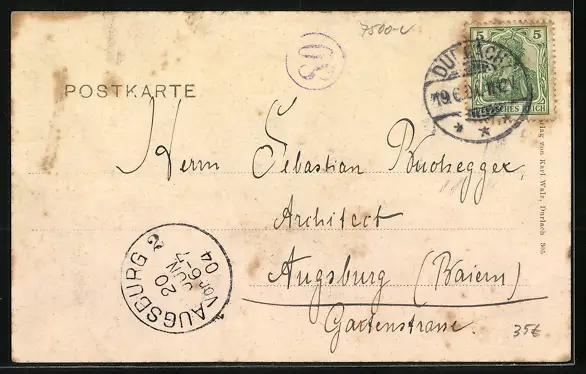 7500-v
80
5 5
DURLACH
19.6.04. 11-12V
DEUTSCHES REICH
POSTKARTE
Herrn Sebastian Buchegger,
Architect
Augsburg (Baiern)
Gartenstrasse.
AUGSBURG 2
Vor 6-7
20 JUN 04
Verlag von Karl Walz, Durlach 305
35€